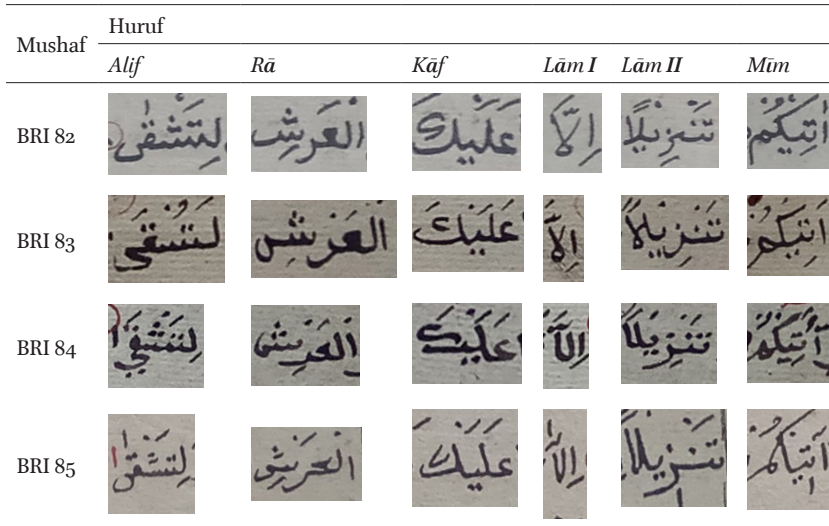 Mushaf Huruf
Alif Rā Kāf Lām I Lām II Mīm
BRI 82 لِتَشْقٰى الْعَرْشِ عَلَيْكَ اِلَّا تَنْزِيلًا اٰتِيكُمْ
BRI 83 لتشقى العرش عَلَيْكَ اِلَّا تَنْزِيلًا اٰتِيكُمْ
BRI 84 لتشقى العرش عَلَيْكَ اِلَّا تَنْزِيلًا اٰتِيكُمْ
BRI 85 لِتَشْقٰى الْعَرْشِ عَلَيْكَ اِلَّا تَنْزِيلًا اٰتِيكُمْ